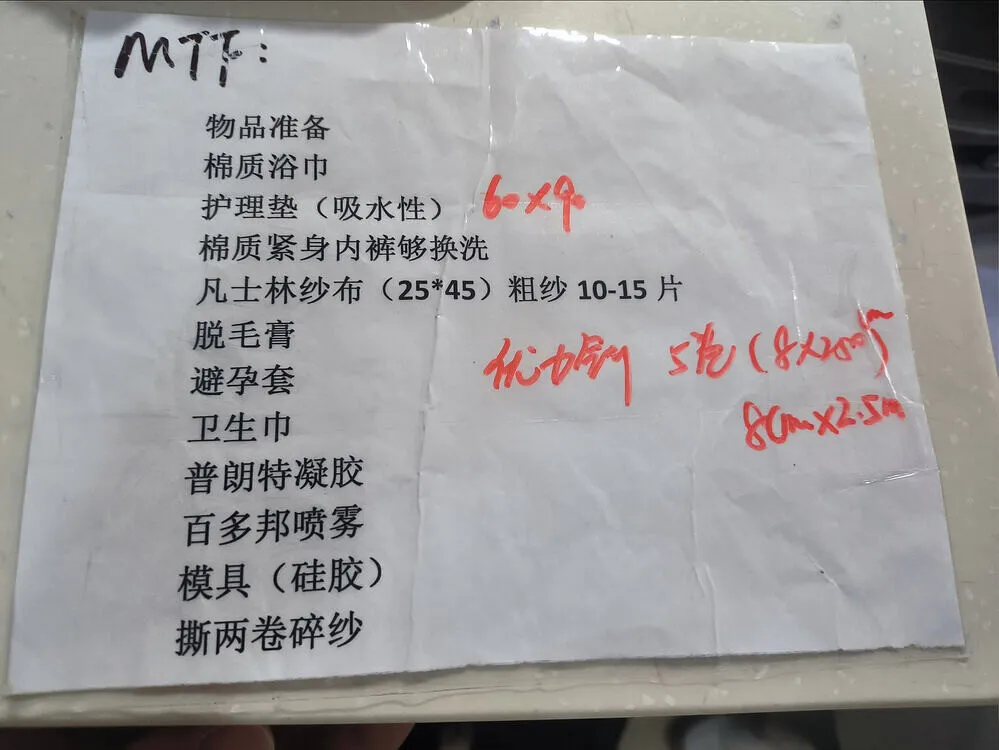 MTF:
物品准备
棉质浴巾
护理垫（吸水性） 60×90
棉质紧身内裤够换洗
凡士林纱布（25*45）粗纱 10-15 片
脱毛膏
优力舒 5卷（8×250cm）
避孕套
8cm×2.5m
卫生巾
普朗特凝胶
百多邦喷雾
模具（硅胶）
撕两卷碎纱